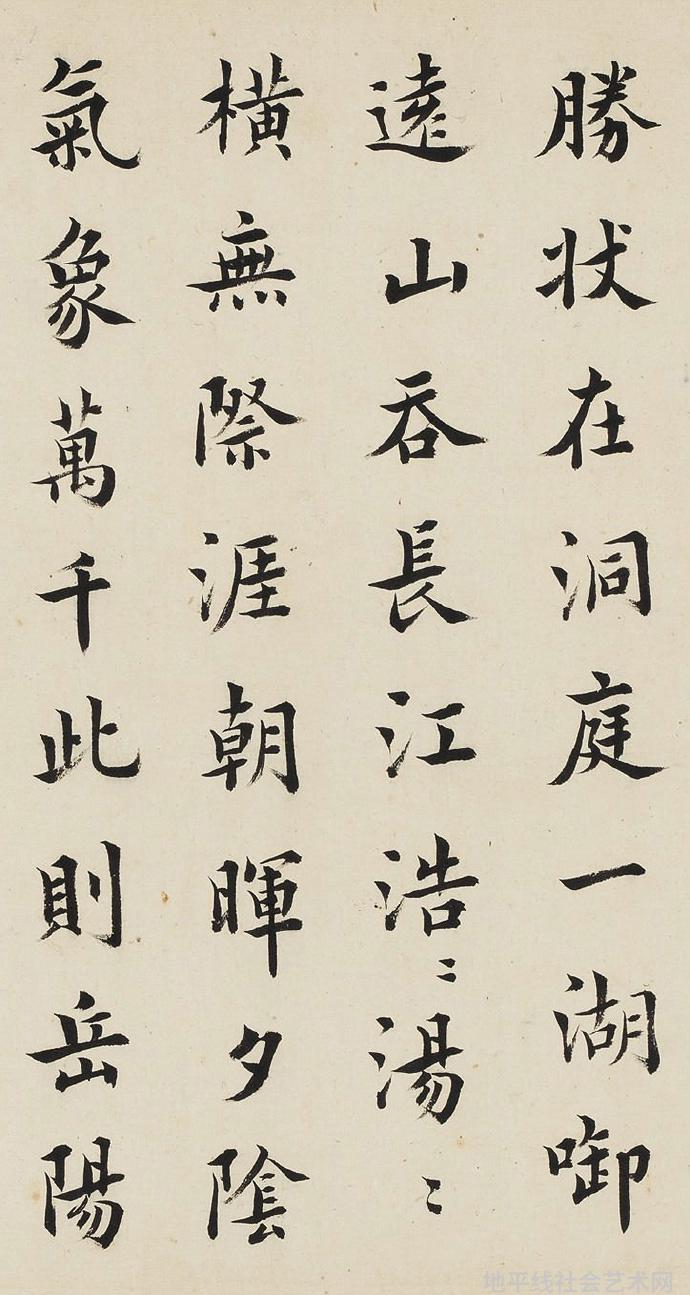 勝狀在洞庭一湖啣
遠山吞長江浩〻湯〻
橫無際涯朝暉夕陰
氣象萬千此則岳陽
地平线社会艺术网